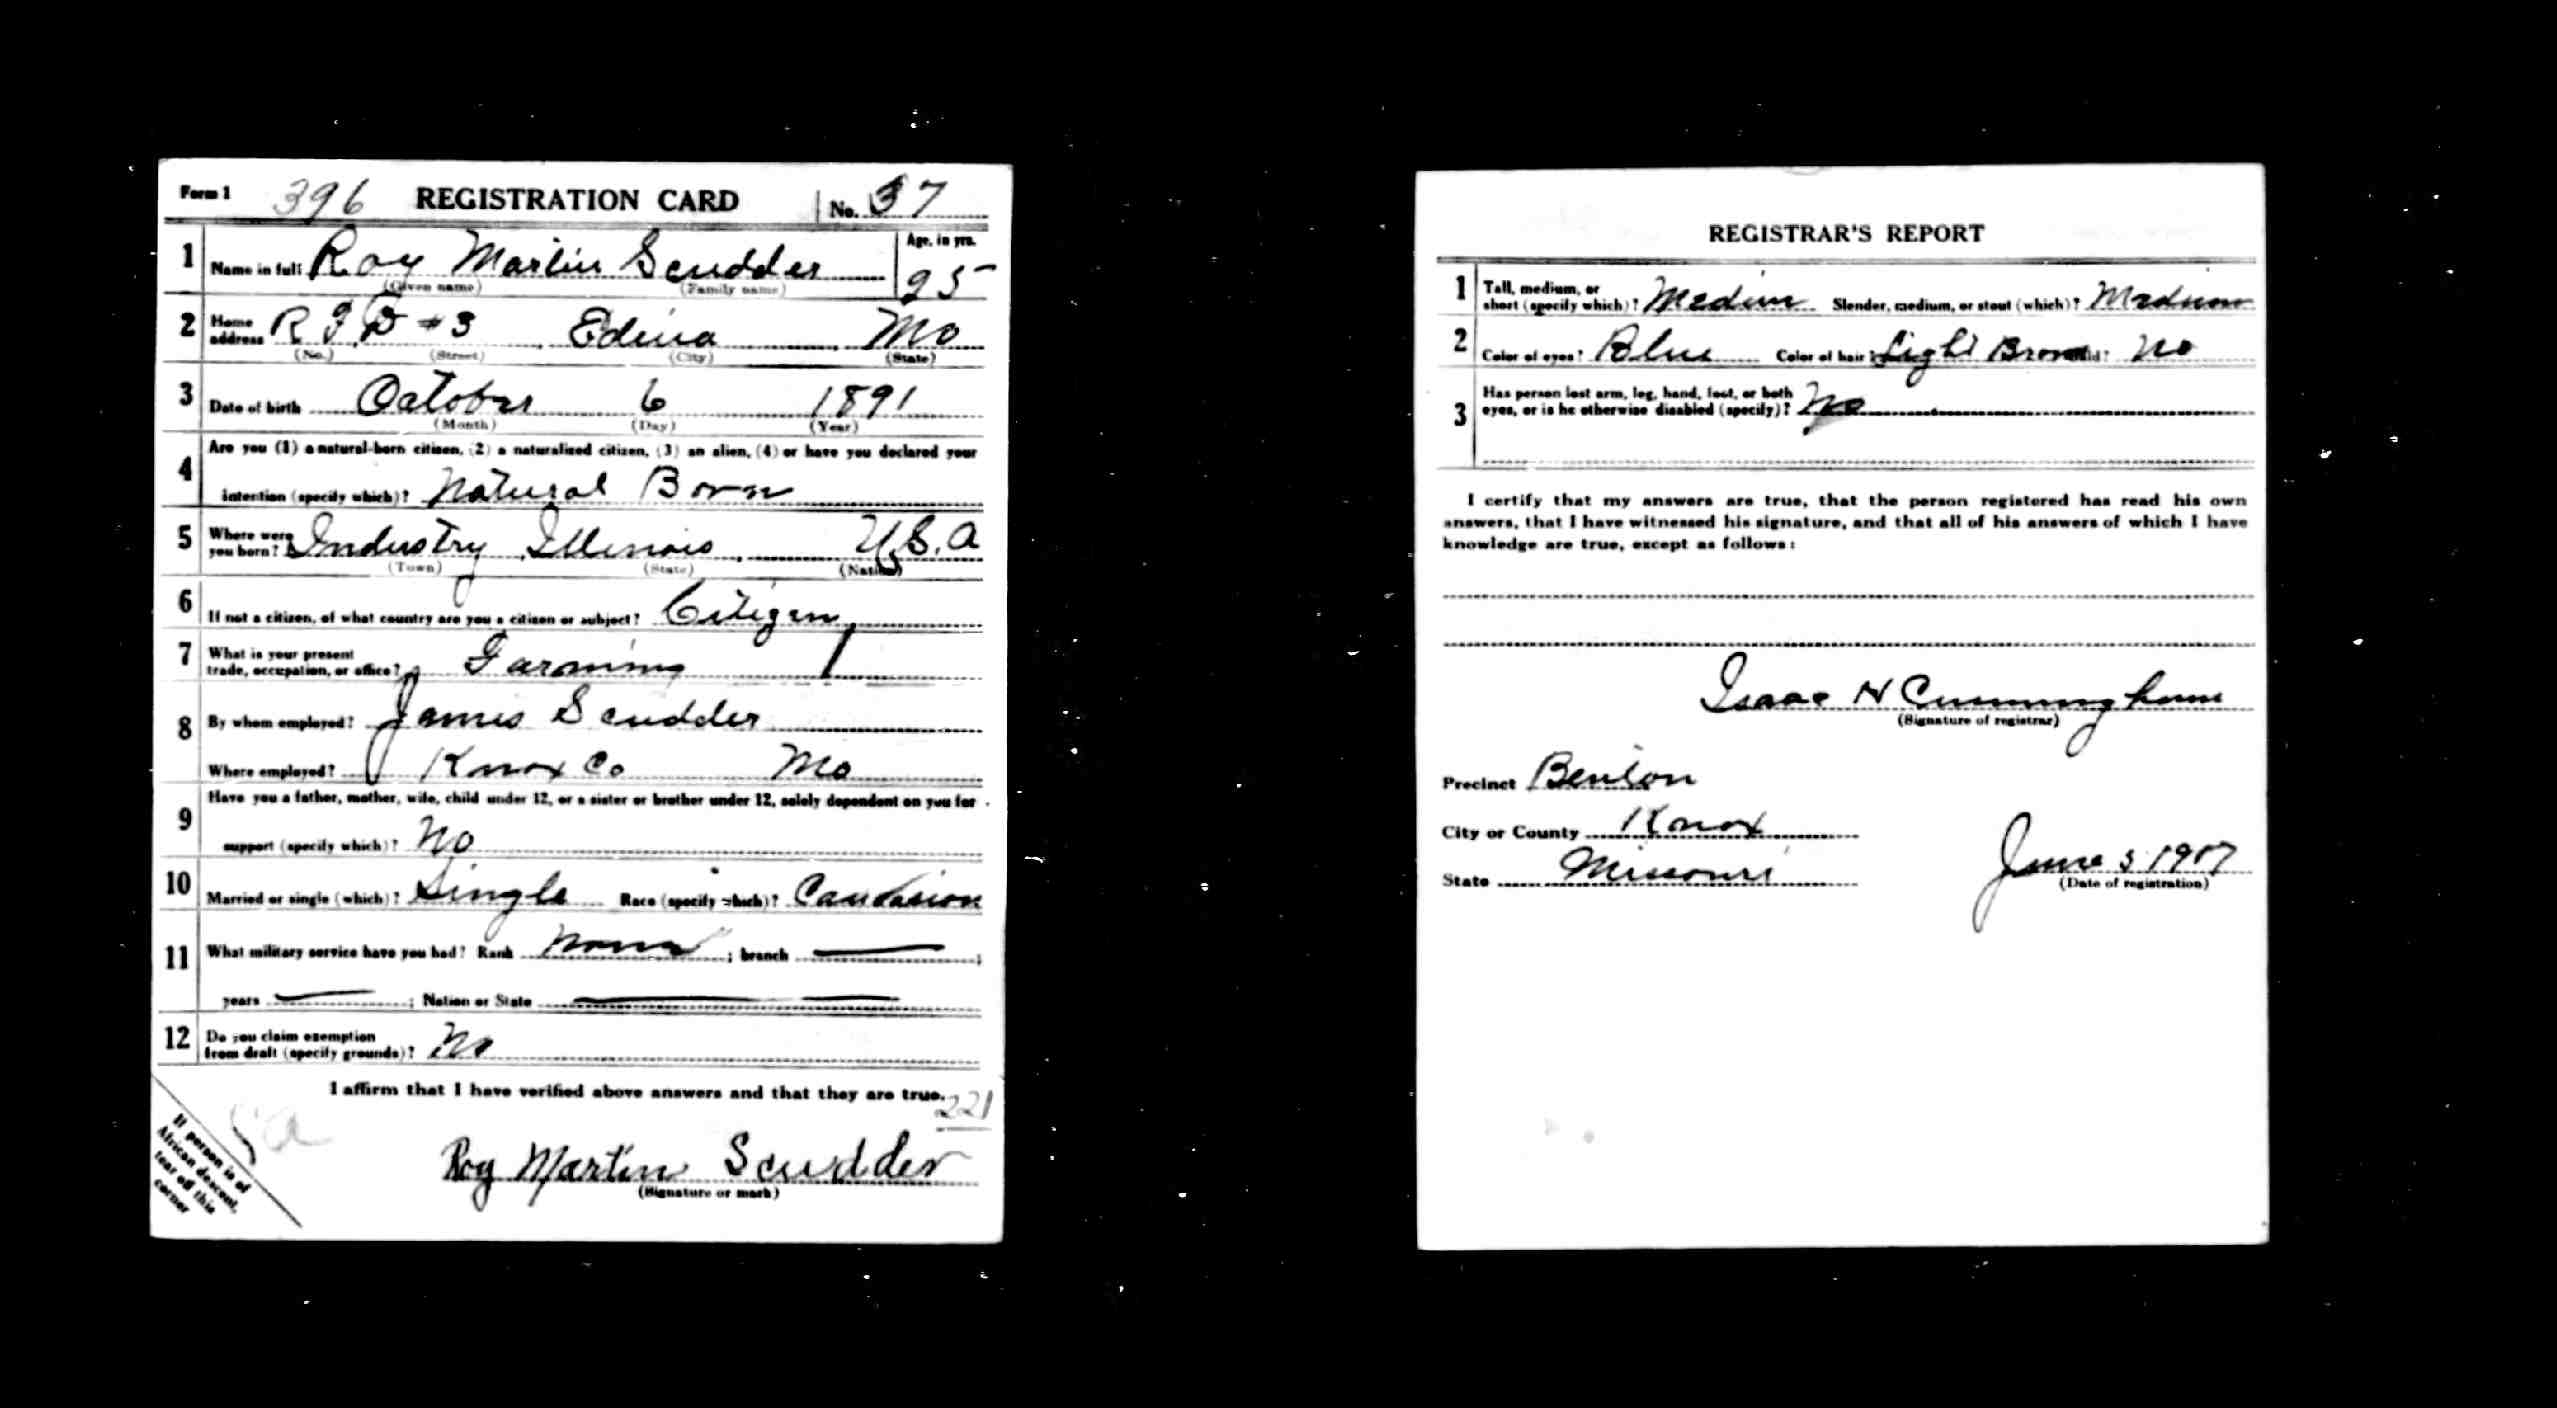 Form 1 396 REGISTRATION CARD No. 37
1 Name in full Roy Martin Scudder Age, in yrs.
(Given name) (Family name) 25
2 Home address R F D #3 Edina Mo
(No.) (Street) (City) (State)
3 Date of birth October 6 1891
(Month) (Day) (Year)
4 Are you (1) a natural-born citizen, (2) a naturalized citizen, (3) an alien, (4) or have you declared your
intention (specify which)? Natural Born
5 Where were you born? Industry Illinois U.S.A
(Town) (State) (Nation)
6 If not a citizen, of what country are you a citizen or subject? Citizen
7 What is your present
trade, occupation, or office? Farming
8 By whom employed? James Scudder
Where employed? Knox Co Mo
9 Have you a father, mother, wife, child under 12, or a sister or brother under 12, solely dependent on you for
support (specify which)? No
10 Married or single (which)? Single Race (specify which)? Caucasion
11 What military service have you had? Rank None ; branch ;
years ; Nation or State
12 Do you claim exemption
from draft (specify grounds)? No
I affirm that I have verified above answers and that they are true.
221
Roy Martin Scudder
(Signature or mark)
If person is of
African descent,
tear off this
corner
REGISTRAR'S REPORT
1 Tall, medium, or
short (specify which)? Medium Slender, medium, or stout (which)? Medium
2 Color of eyes? Blue Color of hair? Light Brown No
3 Has person lost arm, leg, hand, foot, or both
eyes, or is he otherwise disabled (specify)? No
I certify that my answers are true, that the person registered has read his own
answers, that I have witnessed his signature, and that all of his answers of which I have
knowledge are true, except as follows:
Isaac N Cunningham
(Signature of registrar)
Precinct Benton
City or County Knox
State Missouri June 5 1917
(Date of registration)